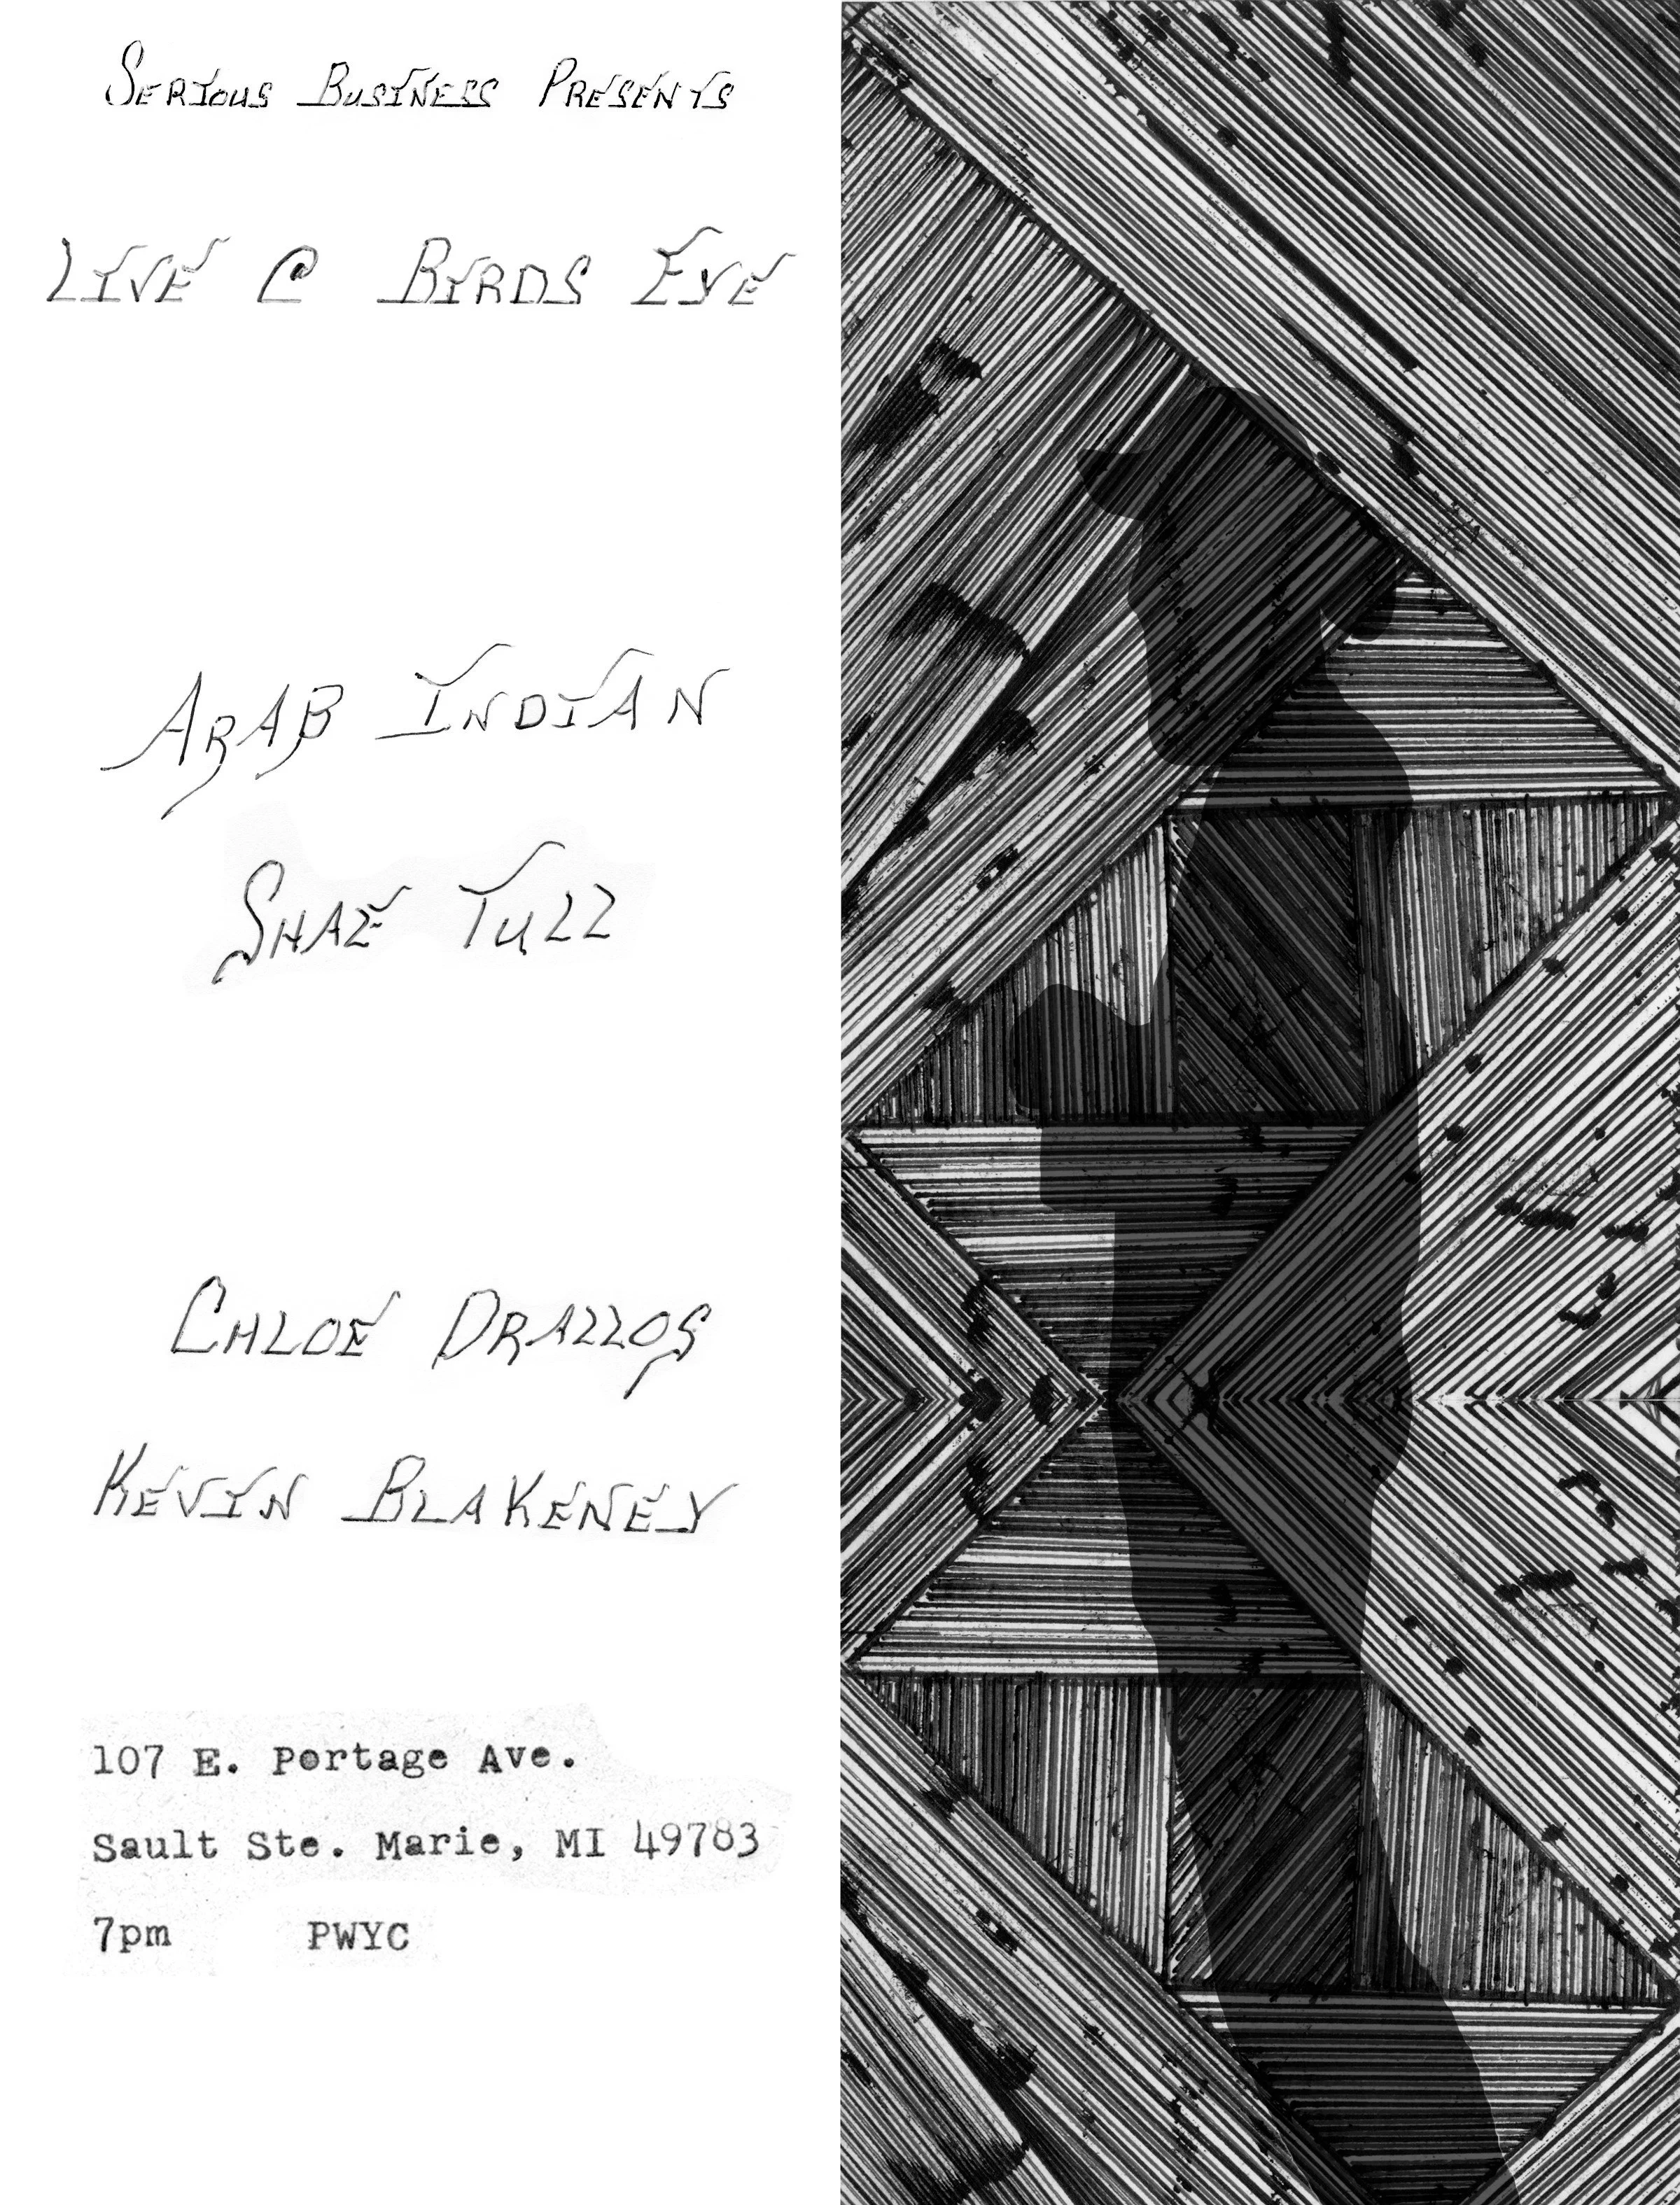 Serious Business Presents
Live @ Birds Eye
Arab Indian
Shae Tull
Chloe Drallos
Kevin Blakeney
107 E. Portage Ave.
Sault Ste. Marie, MI 49783
7pm PWYC